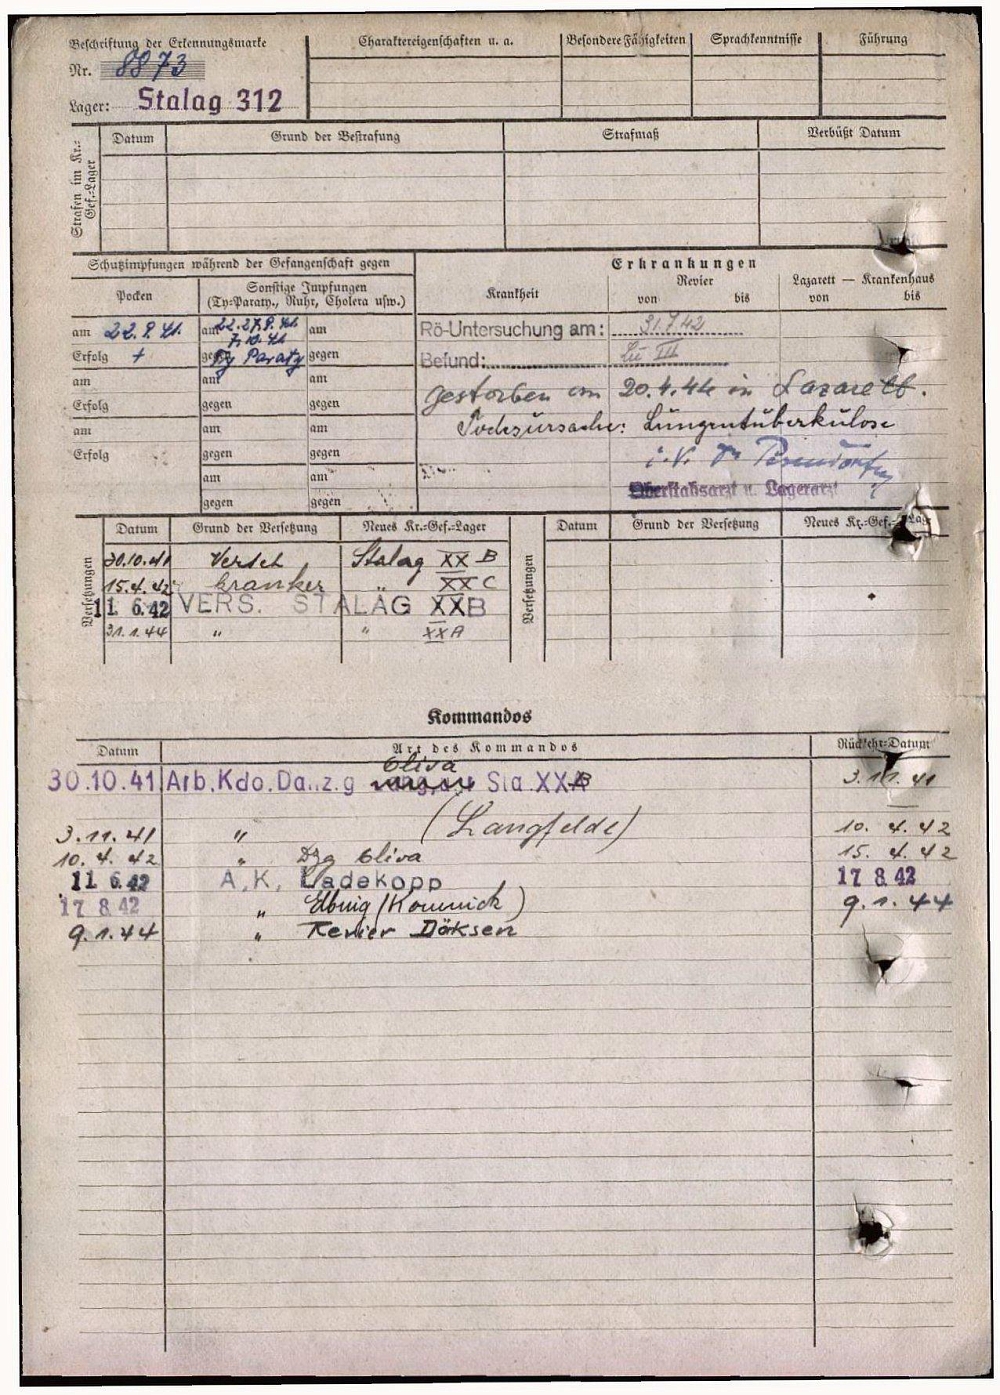 Beschriftung der Erkennungsmarke
Nr. 8873
Lager: Stalag 312
Charaktereigenschaften u. a.
Besondere Fähigkeiten
Sprachkenntnisse
Führung
Strafen im Kr.-Gef.-Lager
Datum Grund der Bestrafung Strafmaß Verbüßt Datum
Schutzimpfungen während der Gefangenschaft gegen
Pocken
Sonstige Impfungen
(Ty-Paraty., Ruhr, Cholera usw.)
am 22.9.41. am 22. 27.9.41 am
7.10.41
Erfolg + gegen Ty Paraty gegen
am am am
Erfolg gegen gegen
am am am
Erfolg gegen gegen
am am
gegen gegen
Erkrankungen
Krankheit
Revier
von bis
Lazarett — Krankenhaus
von bis
Rö-Untersuchung am: 31.7.42
Befund: Lu III
gestorben am 20.4.44 in Lazarett.
Todesursache: Lungentuberkulose
i.V. Dr
Oberstabsarzt u. Lagerarzt
Versetzungen
Datum Grund der Versetzung Neues Kr.-Gef.-Lager
30.10.41 Versetz Stalag XX B
15.4.42 kranker " XX C
11 6.42 VERS. STALAG XXB
31.1.44 " " XXA
Versetzungen
Datum Grund der Versetzung Neues Kr.-Gef.-Lag.
Kommandos
Datum Art des Kommandos Rückkehr-Datum
Oliva
30.10.41 Arb.Kdo.Danz.g Sta.XXB 3.11.41
3.11.41 " (Langfelde) 10. 4.42
10. 4. 42 " Dzg Oliva 15. 4.42
11 6.42 A.K. Ladekopp 17 8.42
17 8.42 " Elbing (Kommick) 9.1.44
9.1.44 " Revier Döksen